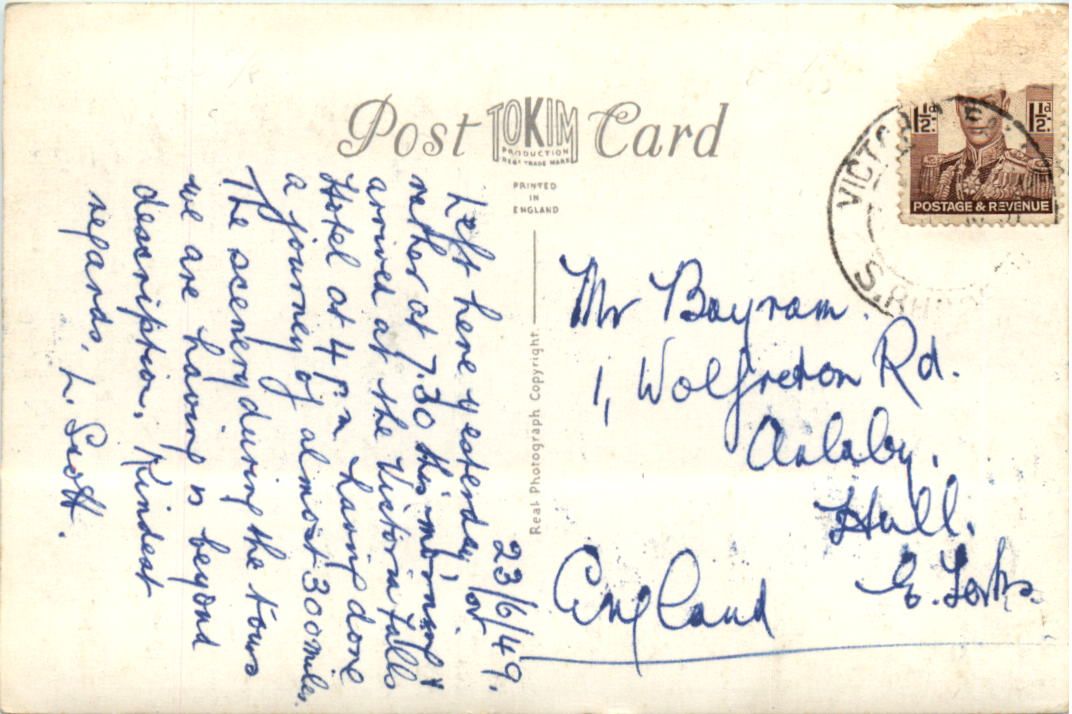 Post Card
TOKIM
PRODUCTION
REGD TRADE MARK
PRINTED
IN
ENGLAND
Real Photograph Copyright.
1½d. 1½d.
POSTAGE & REVENUE
VICTORIA
S. RH
23/6/49.
Left here yesterday, or
rather at 7.30 this morning &
arrived at the Victoria Falls
Hotel at 4 pm having done
a journey of almost 300 miles.
The scenery during the tours
we are having is beyond
description. Kindest
regards, L. Scott.
Mr Boyram.
1, Wolfreton Rd.
Anlaby.
Hull.
E. Yorks.
England